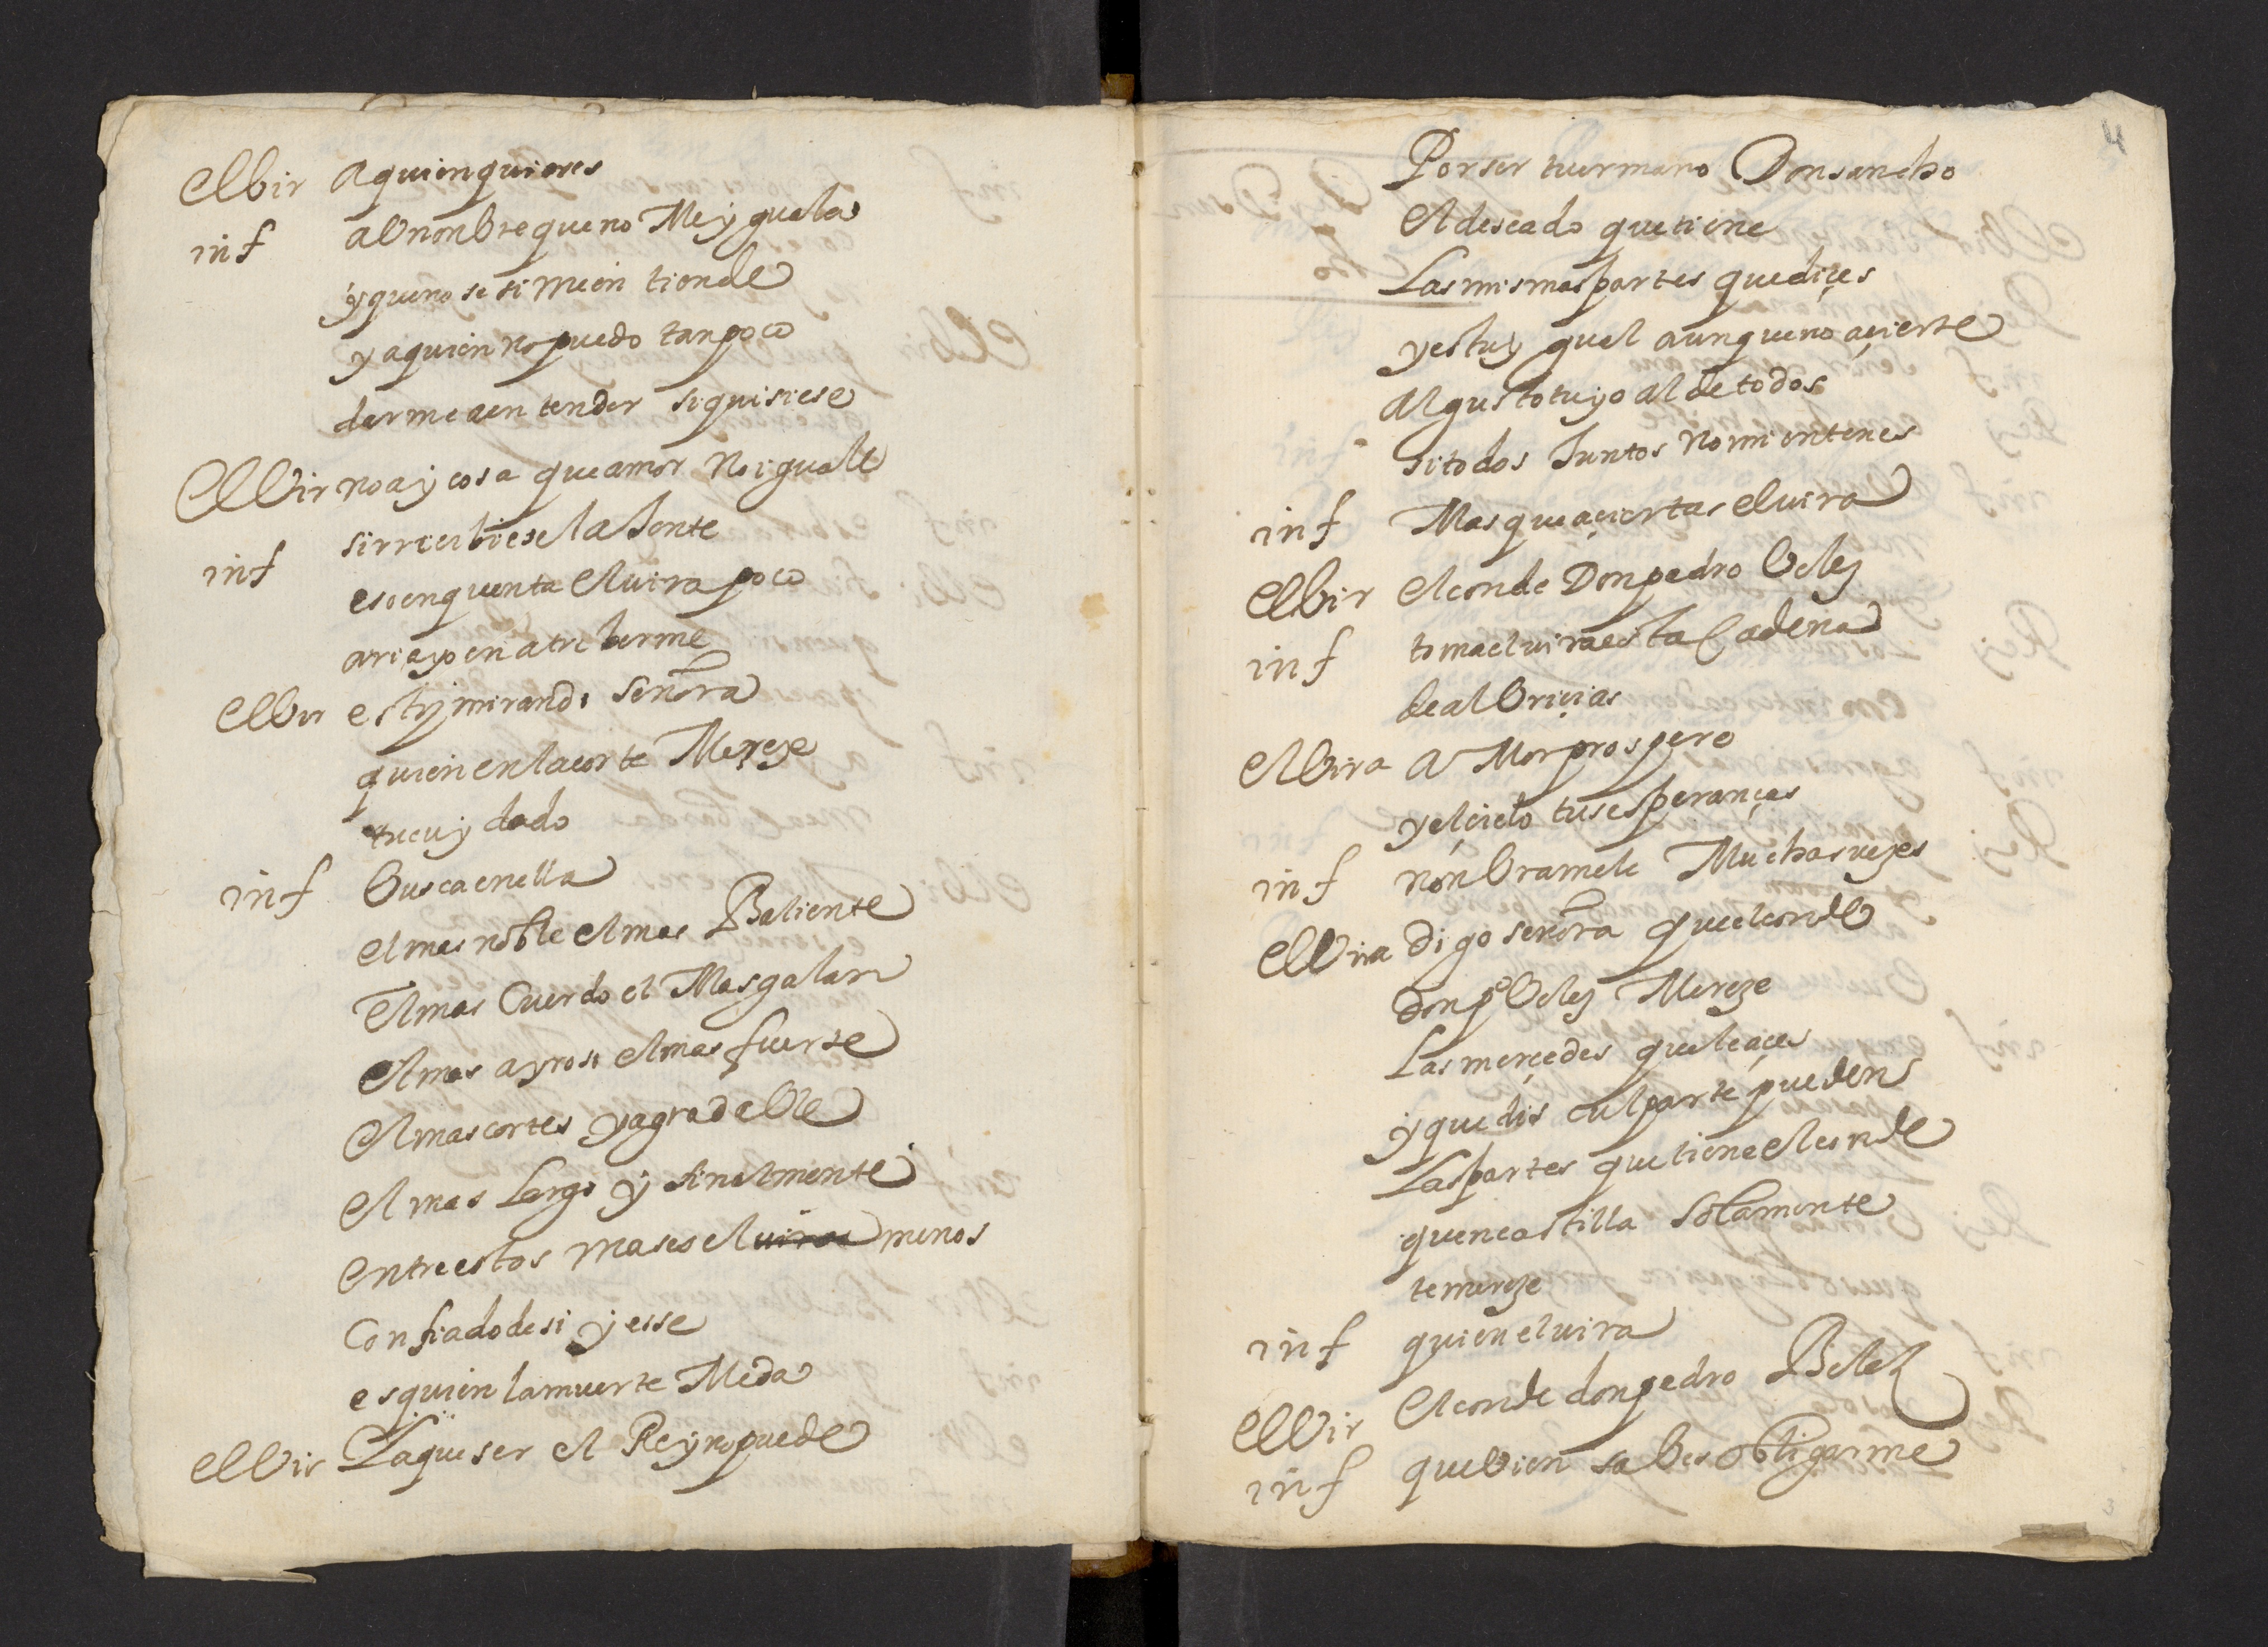 elbir a quien quieres
inf a un onbre que no me yguala
y que no se si me entiende
y a quien no puedo tanpoco
darme a entender si quisiese
elbir no ay cosa que amor no iguale
si rrecibiese la jente
inf eso en quenta elvira poco
aria yo en atreberme
elbir estoy mirando señora
quien en la corte mereçe
tu cuydado
inf busca en ella
el mas noble el mas baliente
el mas cuerdo el mas galan
el mas ayroso el mas fuerte
el mas cortes y agradable
el mas largo y finalmente
entre estos mas es el menos
confiado de si y esse
es quien la muerte me da
elbir ya que ser el Rey no puede
4
Por ser tu ermano Don sancho
el deseado que tiene
las mismas partes que diçes
y es tu ygual aunque no açierte
al gusto tuyo al de todos
si todos juntos no mienten es
inf mas que açiertas elvira
elbir el conde Don pedro belez
inf toma elvira esta cadena
de albriçias
elbira amor prospere
y el çielo tus esperanças
inf nonbramele muchas vezes
elbira digo señora que el conde
don po belez mereze
las merçedes que le açes
y que disculparte pueden
las partes que tiene el conde
que en castilla solamente
te mereze
inf quien elvira
elbir el conde don pedro Belez
inf que bien sabes obligarme
3